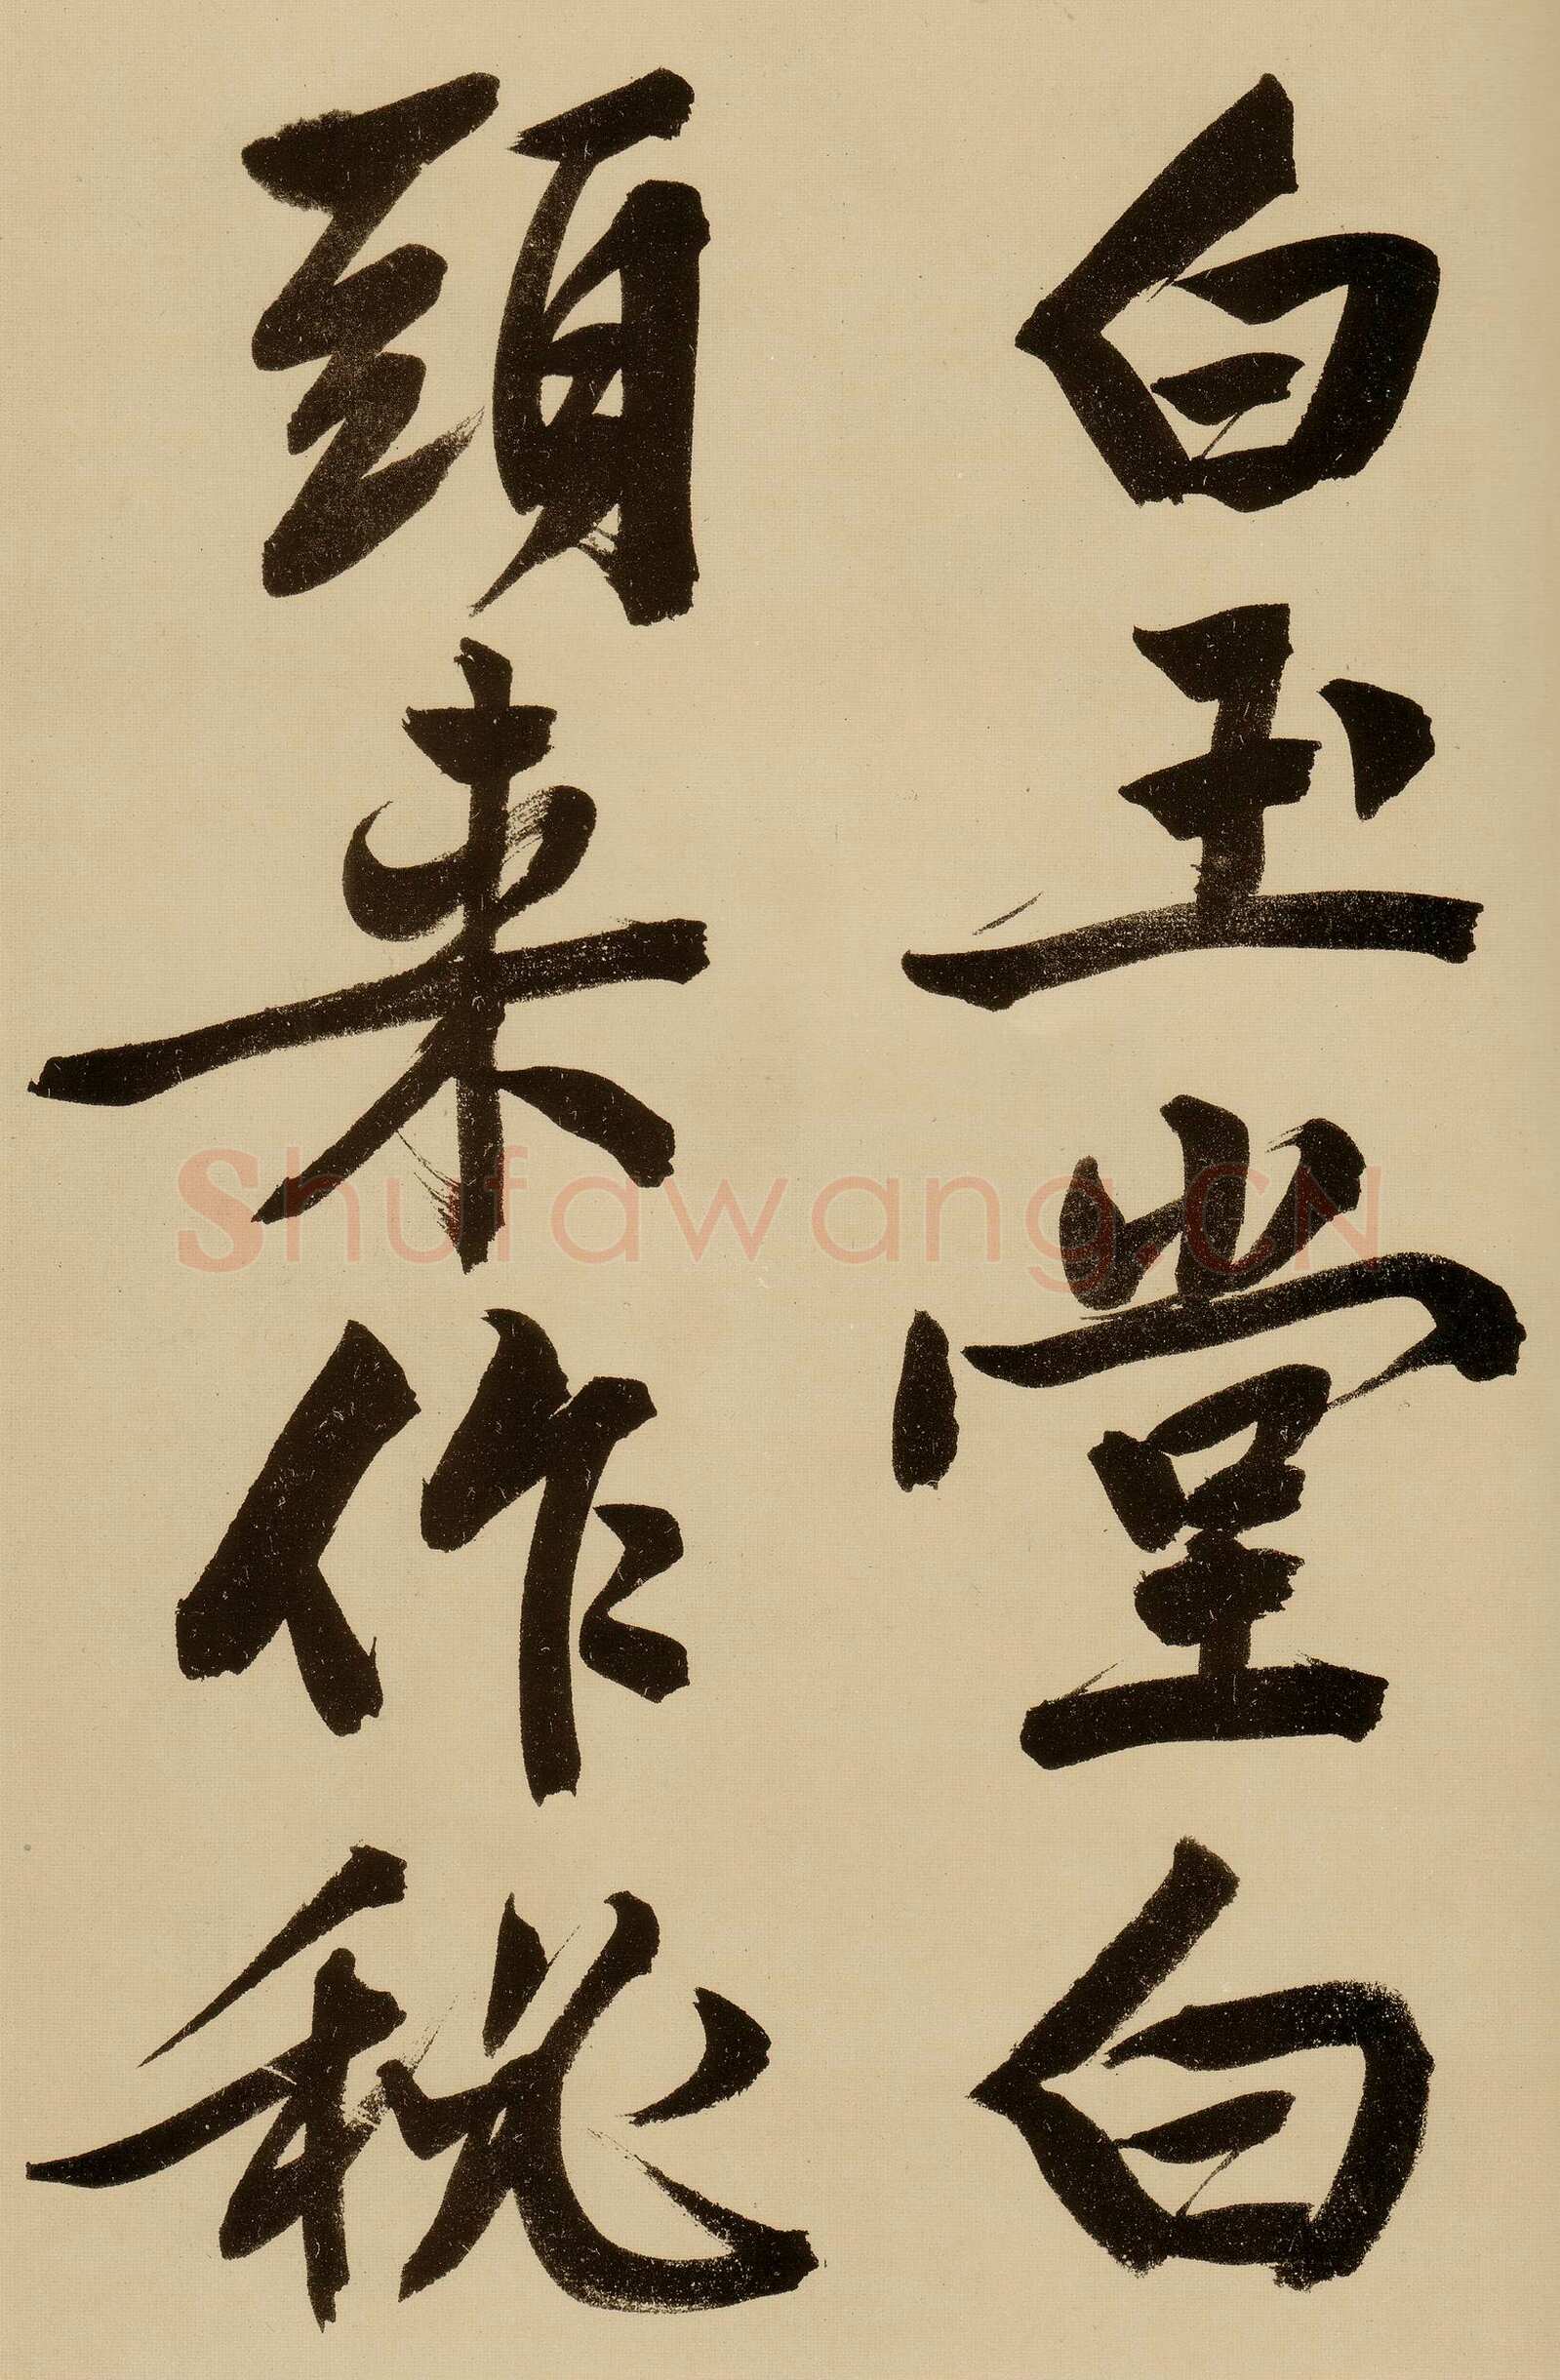 白玉堂白
頭来作秘
Shufawang.CN